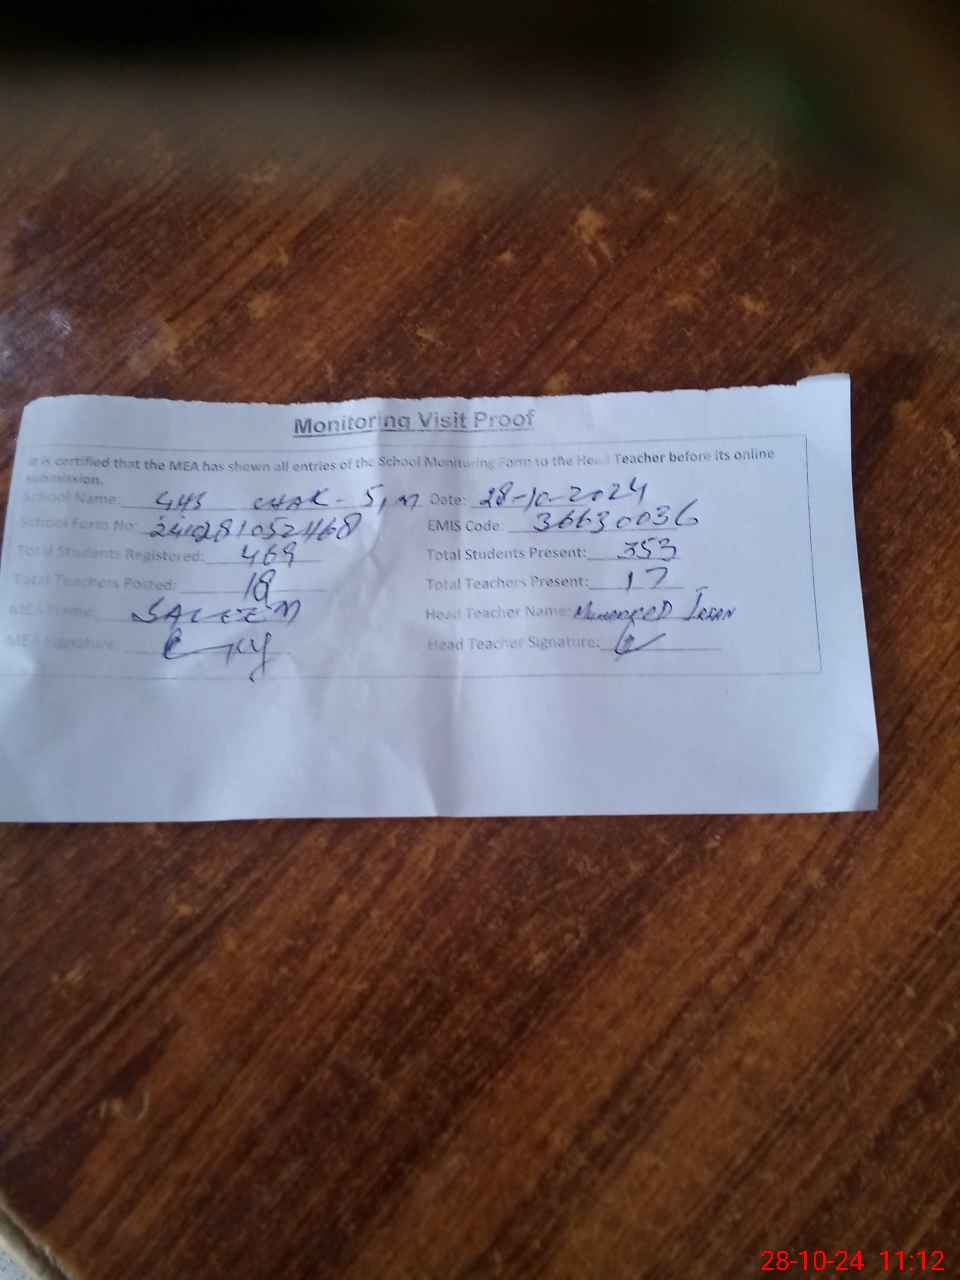 Monitoring Visit Proof
It is certified that the MEA has shown all entries of the School Monitoring Form to the Head Teacher before its online
submission.
School Name: GHS CHAK-5/M Date: 28-10-2024
School Form No: EMIS Code: 36630036
Total Students Registered: 469 Total Students Present: 353
Total Teachers Posted: 18 Total Teachers Present: 17
MEA Name: SALEEM Head Teacher Name:
MEA Signature: Head Teacher Signature:
28-10-24 11:12